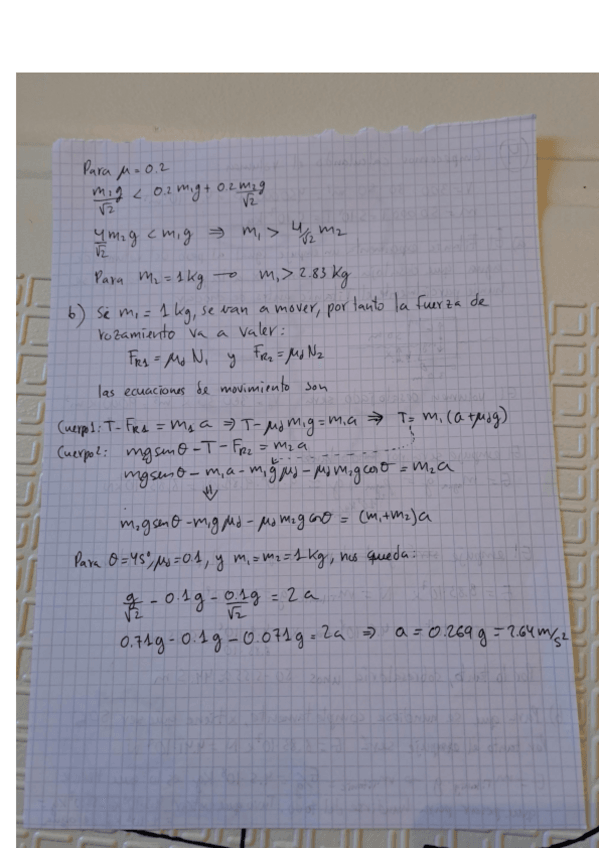 Para μ = 0.2
m₂g/√2 < 0.2 m₁g + 0.2 m₂g/√2
4/√2 m₂g < m₁g ⇒ m₁ > 4/√2 m₂
Para m₂ = 1 kg → m₁ > 2.83 kg
b) Si m₁ = 1 kg, se van a mover, por tanto la fuerza de
rozamiento va a valer:
F_R1 = μd N₁ y F_R2 = μd N₂
las ecuaciones de movimiento son
Cuerpo 1: T - F_R1 = m₁ a ⇒ T - μd m₁g = m₁a ⇒ T = m₁(a + μd g)
Cuerpo 2: mg senθ - T - F_R2 = m₂a
mg senθ - m₁a - m₁g μd - μd m₂g cosθ = m₂a
⇓
m₂g senθ - m₁g μd - μd m₂g cosθ = (m₁+m₂)a
Para θ = 45°, μd = 0.1, y m₁ = m₂ = 1 kg, nos queda:
g/√2 - 0.1g - 0.1g/√2 = 2a
0.71g - 0.1g - 0.071g = 2a ⇒ a = 0.269g = 2.64 m/s²